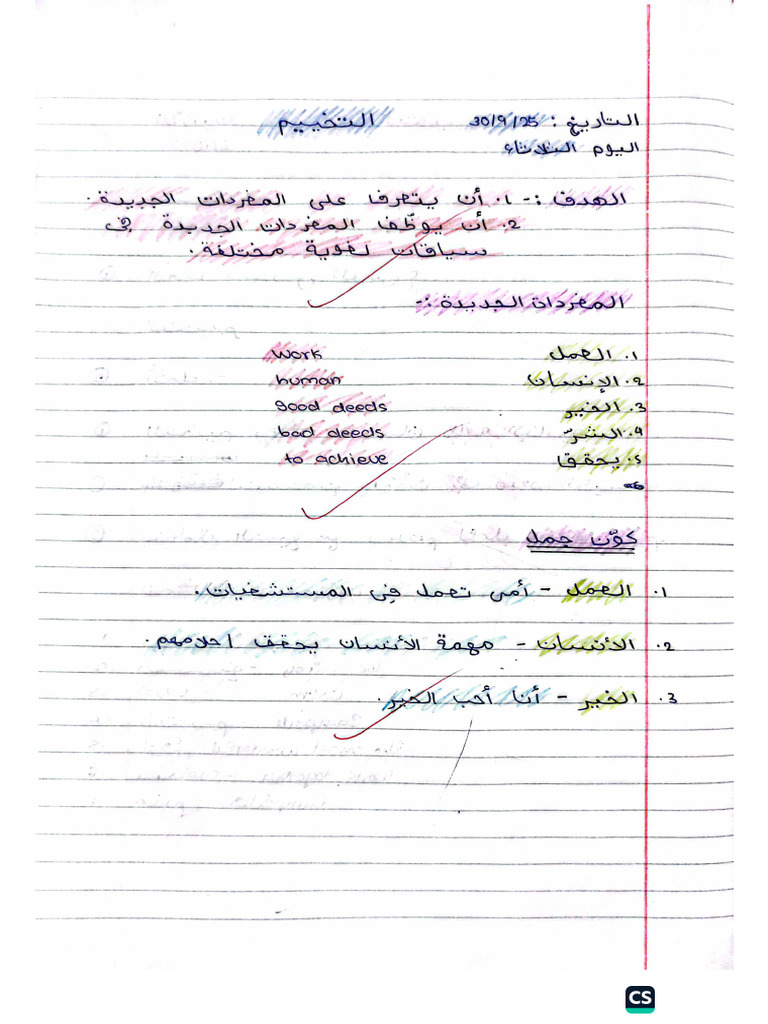 التاريخ : 30/9/25 التخييم
اليوم الثلاثاء
الهدف :- 1. أن يتعرف على المفردات الجديدة.
2. أن يوظّف المفردات الجديدة في
سياقات لغوية مختلفة.
المفردات الجديدة :-
1. العمل work
2. الإنسان human
3. الخير good deeds
4. الشرّ bad deeds
5. يحقق to achieve
كوّن جمل
1. العمل - أمي تعمل في المستشفيات.
2. الأنسان - مهمة الأنسان يحقق احلامهم.
3. الخير - أنا أحب الخير.
CS